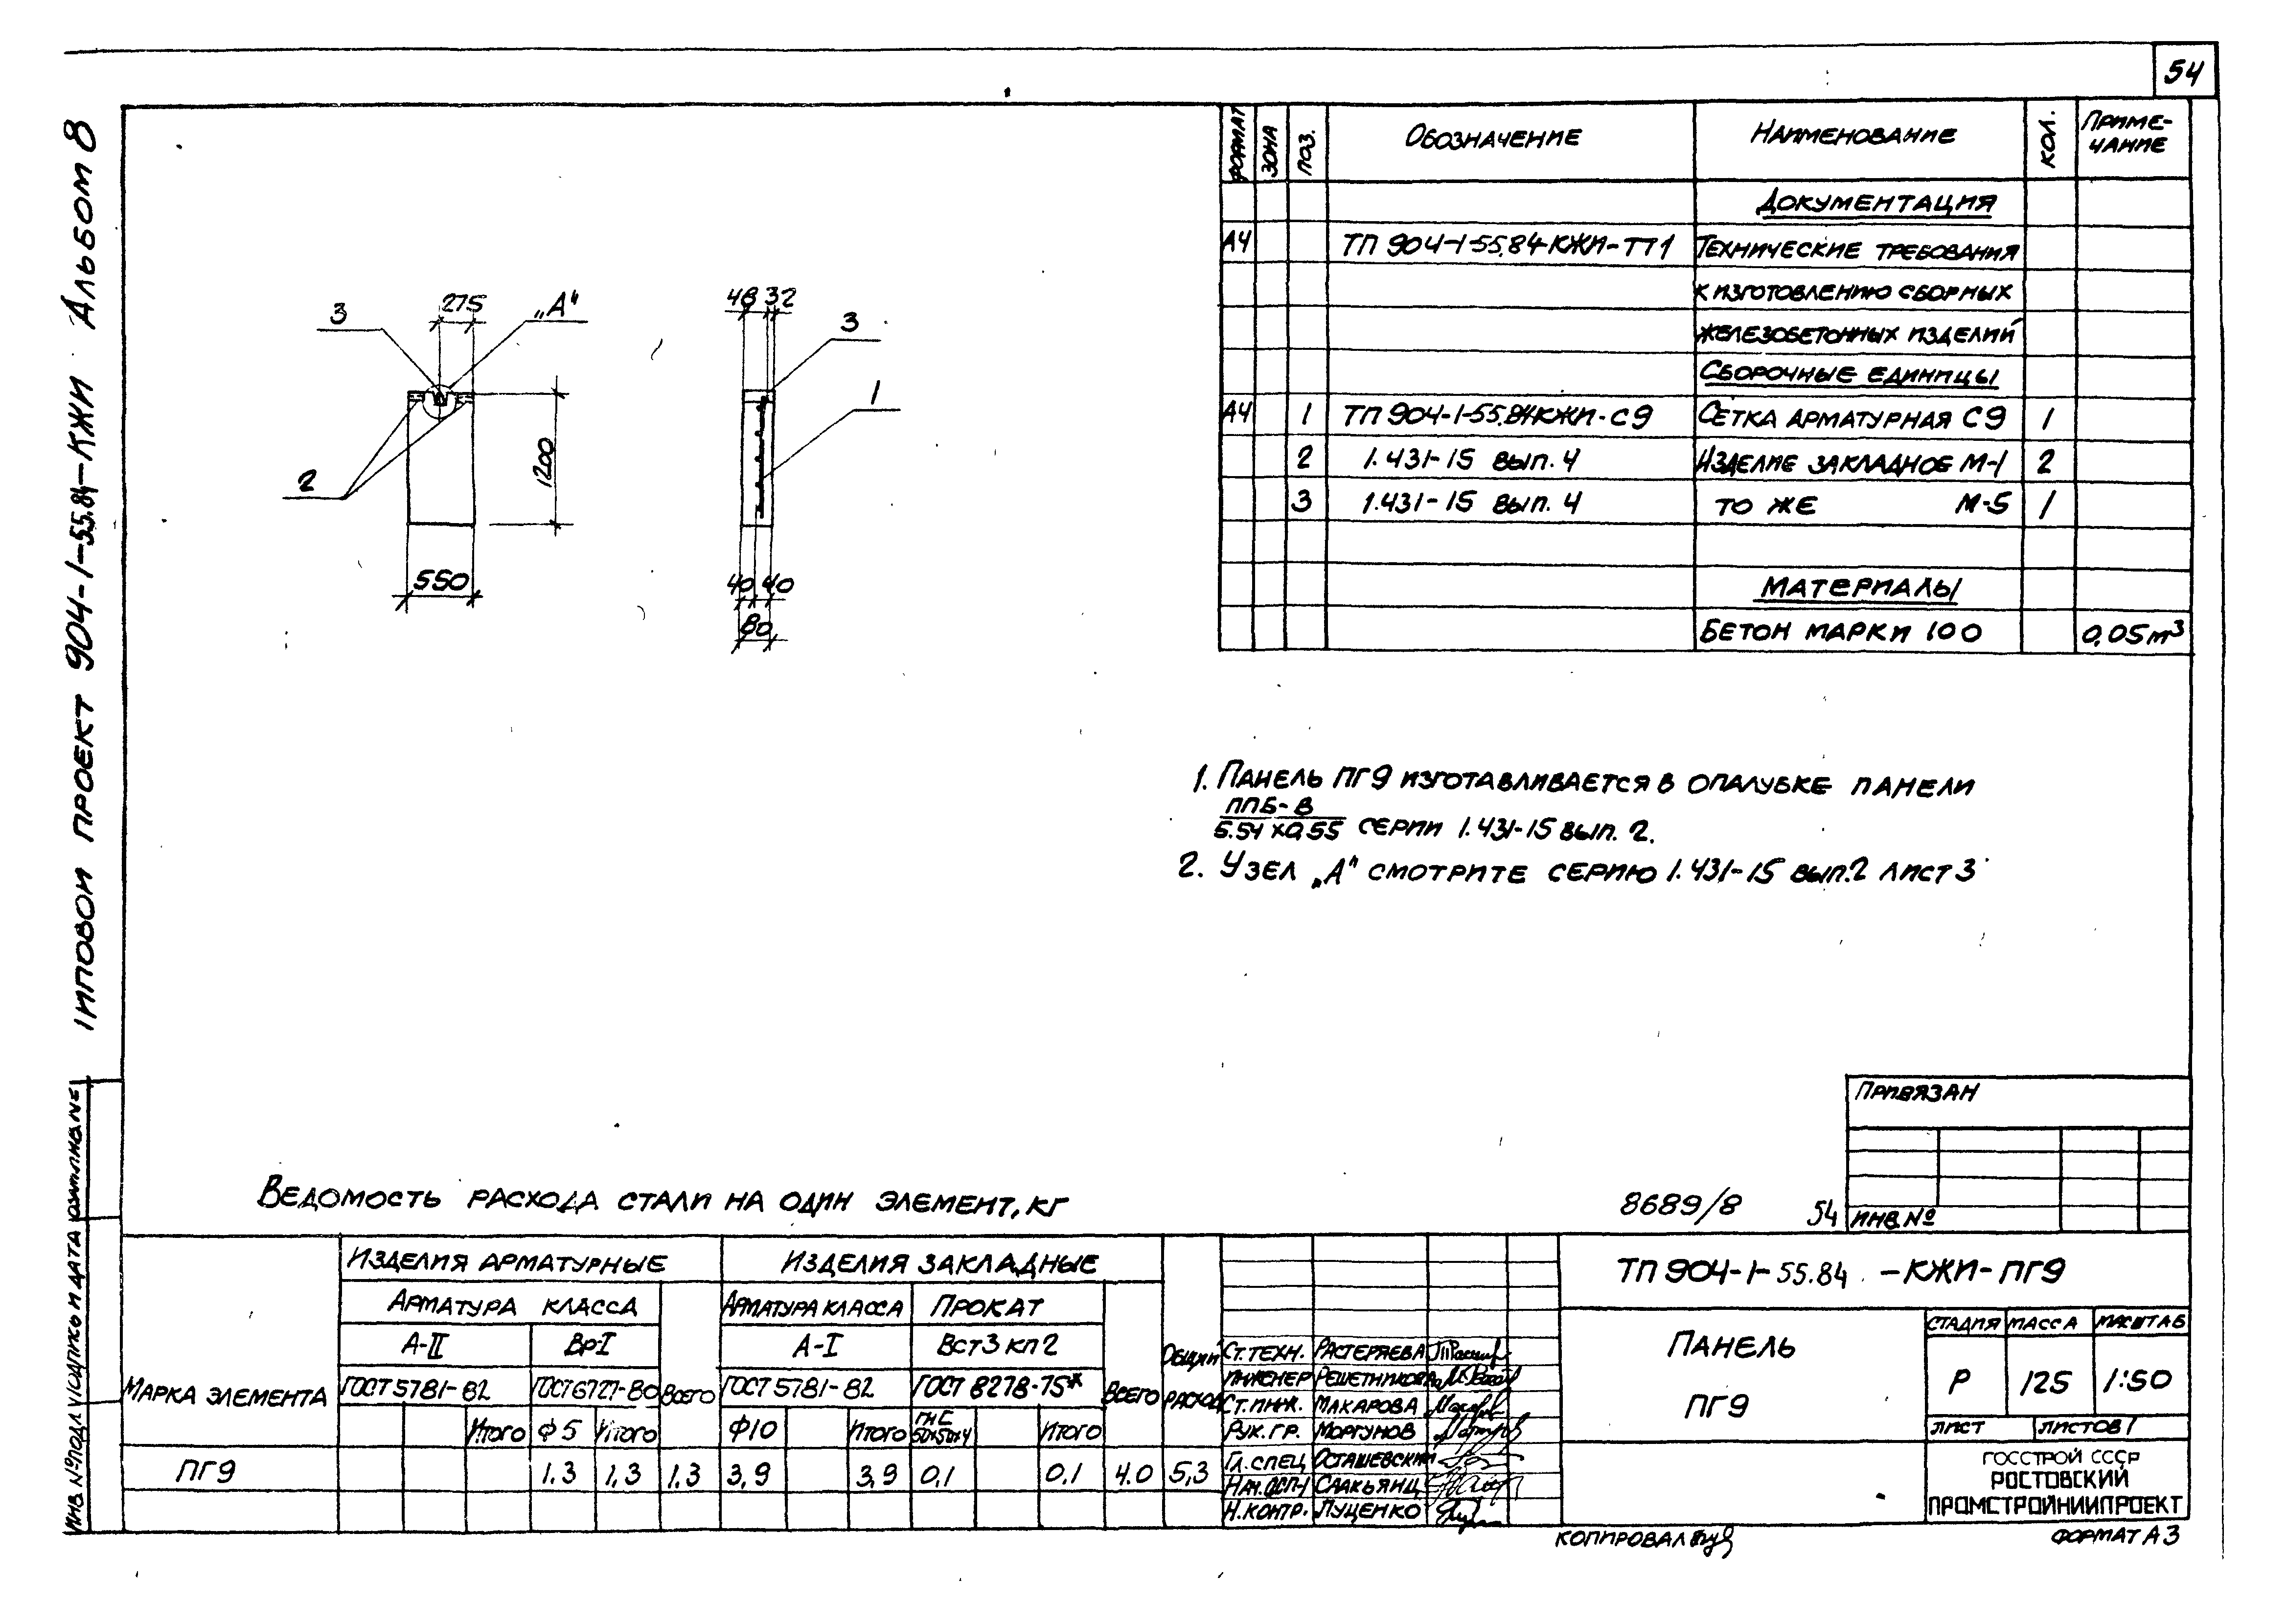 54
Типовой проект 904-1-55.84-КЖИ Альбом 8
Формат Зона Поз. Обозначение Наименование Кол. Приме-
чание
Документация
А4 ТП 904-1-55.84-КЖИ-ТТ1 Технические требования
к изготовлению сборных
железобетонных изделий
Сборочные единицы
А4 1 ТП 904-1-55.84КЖИ-С9 Сетка арматурная С9 1
2 1.431-15 вып. 4 Изделие закладное М-1 2
3 1.431-15 вып. 4 то же М-5 1
Материалы
Бетон марки 100 0,05м³
3 275 „А"
2
1200
550
48 32
3
1
40 40
80
1. Панель ПГ9 изготавливается в опалубке панели
ППБ-В
5.54x0.55 серии 1.431-15 вып. 2.
2. Узел „А" смотрите серию 1.431-15 вып.2 лист 3
Привязан
Инв.№
8689/8 54
Ведомость расхода стали на один элемент, кг
Марка элемента Изделия арматурные Изделия закладные Общий расход
Арматура класса Всего Арматура класса Прокат Всего
А-II Вр-I А-I Вст3 кп2
ГОСТ 5781-82 ГОСТ 6727-80 ГОСТ 5781-82 ГОСТ 8278-75*
Итого Ф5 Итого Ф10 Итого ГнС 50х50х4 Итого
ПГ9 1.3 1,3 1.3 3,9 3,9 0,1 0.1 4.0 5,3
ТП 904-1-55.84 -КЖИ-ПГ9
Ст.техн. Растеряева
Инженер Решетникова
Ст.инж. Макарова
Рук.гр. Моргунов
Гл.спец Осташевский
Нач.ОСП-1 Саакьянц
Н.контр. Луценко
Панель
ПГ9
Стадия Масса Масштаб
Р 125 1:50
Лист Листов 1
ГОССТРОЙ СССР
РОСТОВСКИЙ
ПРОМСТРОЙНИИПРОЕКТ
Копировал
Формат А3
Инв.№ подл Подпись и дата Взам.инв.№